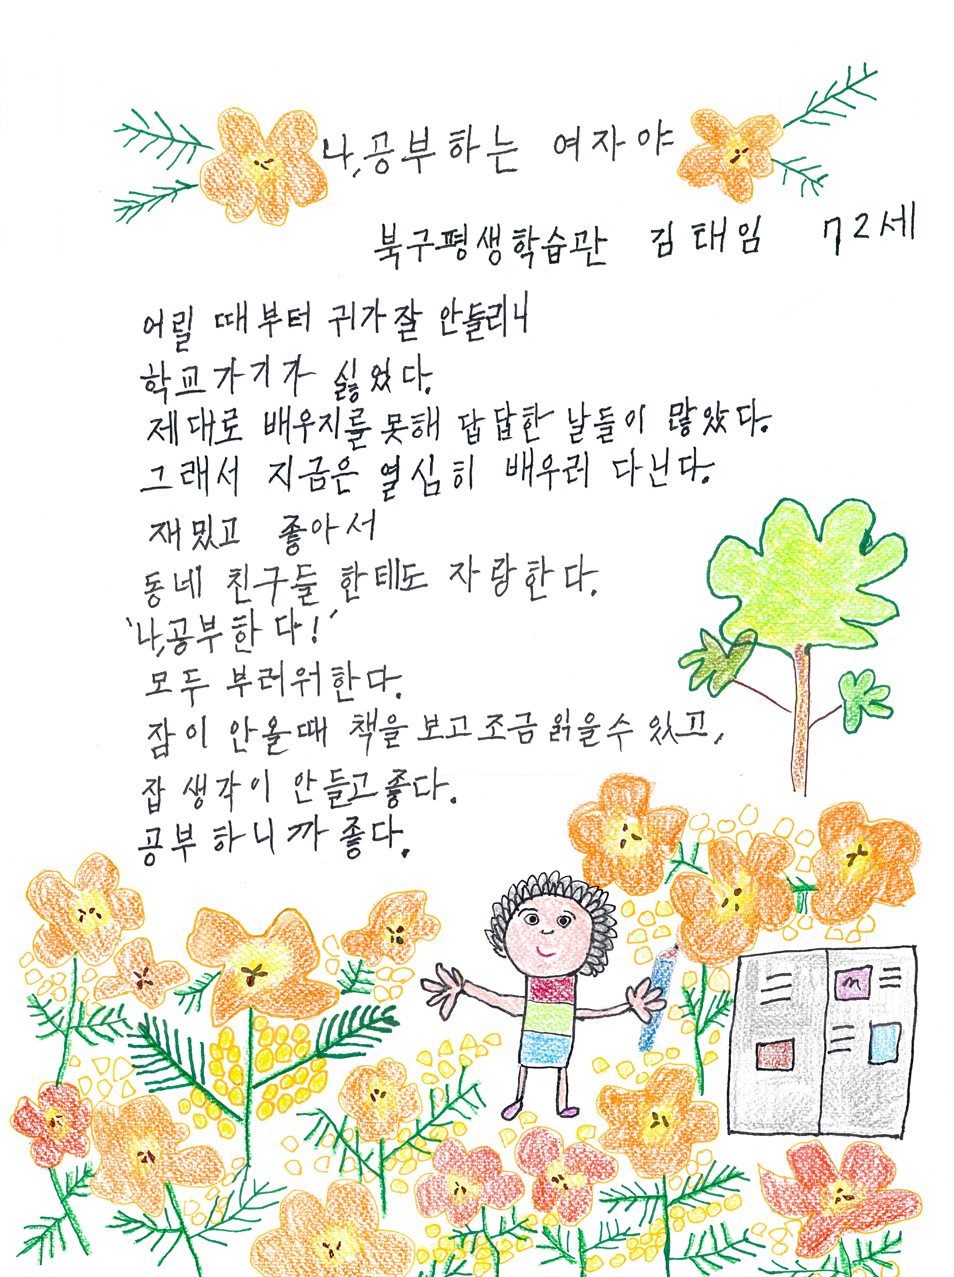 나, 공부하는 여자야
북구평생학습관 김태임 72세
어릴 때부터 귀가잘 안들리니
학교가기가 싫었다.
제대로 배우지를 못해 답답한 날들이 많았다.
그래서 지금은 열심히 배우러 다닌다.
재밌고 좋아서
동네 친구들 한테도 자랑한다.
'나,공부한다!'
모두 부러워한다.
잠이 안올때 책을 보고 조금 읽을수 있고,
잡생각이 안들고 좋다.
공부하니까 좋다.